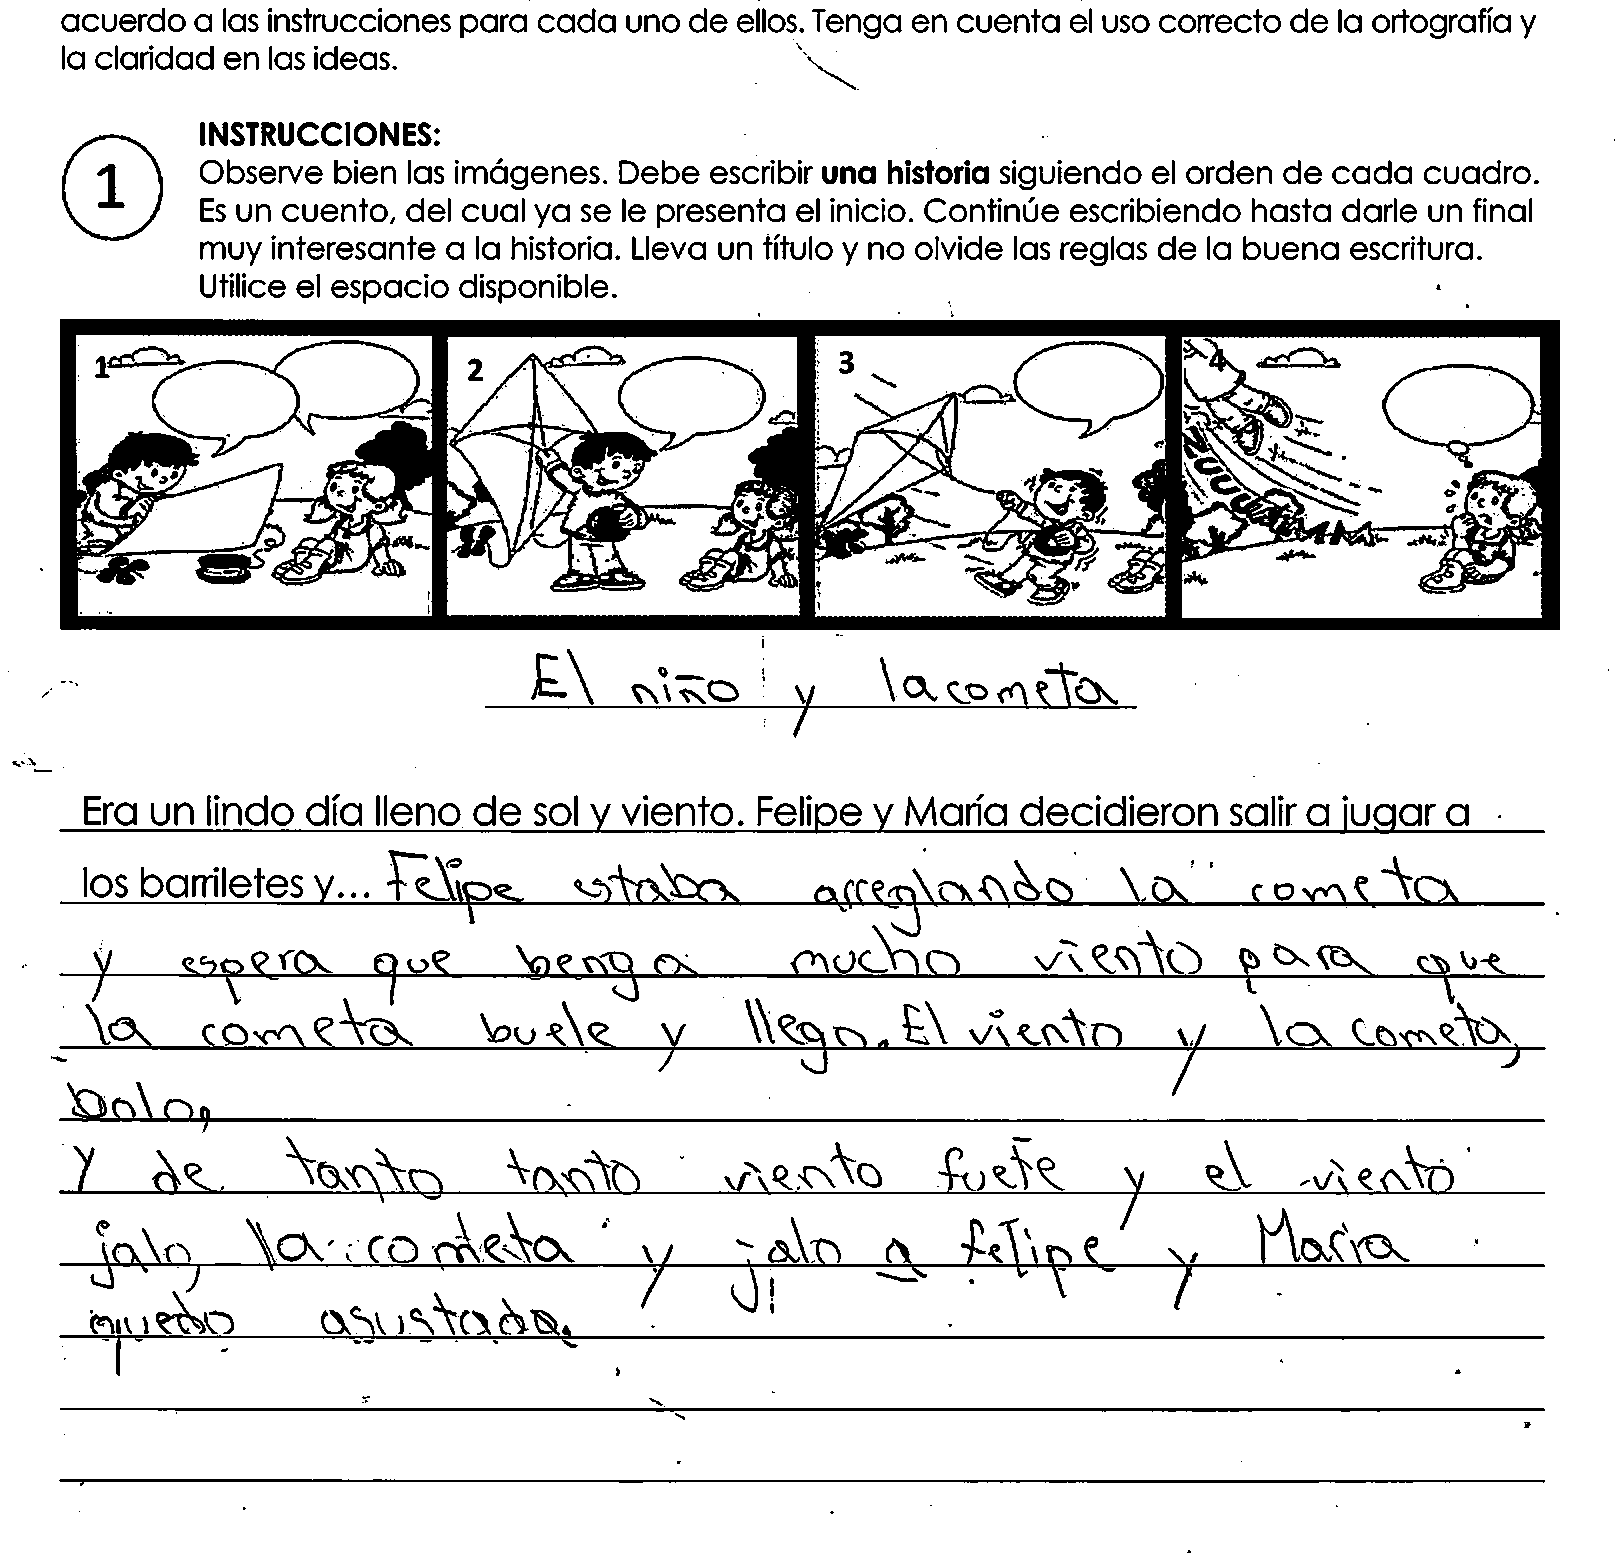 acuerdo a las instrucciones para cada uno de ellos. Tenga en cuenta el uso correcto de la ortografía y
la claridad en las ideas.
1
INSTRUCCIONES:
Observe bien las imágenes. Debe escribir una historia siguiendo el orden de cada cuadro.
Es un cuento, del cual ya se le presenta el inicio. Continúe escribiendo hasta darle un final
muy interesante a la historia. Lleva un título y no olvide las reglas de la buena escritura.
Utilice el espacio disponible.
1 2 3 4
ZUUUUM
El niño y la cometa
Era un lindo día lleno de sol y viento. Felipe y María decidieron salir a jugar a
los barriletes y... Felipe estaba arreglando la cometa
y espera que benga mucho viento para que
la cometa buele y llego. El viento y la cometa,
bolo,
y de tanto tanto viento fuete y el viento
jalo, la cometa y jalo a felipe y Maria
quedo asustada.